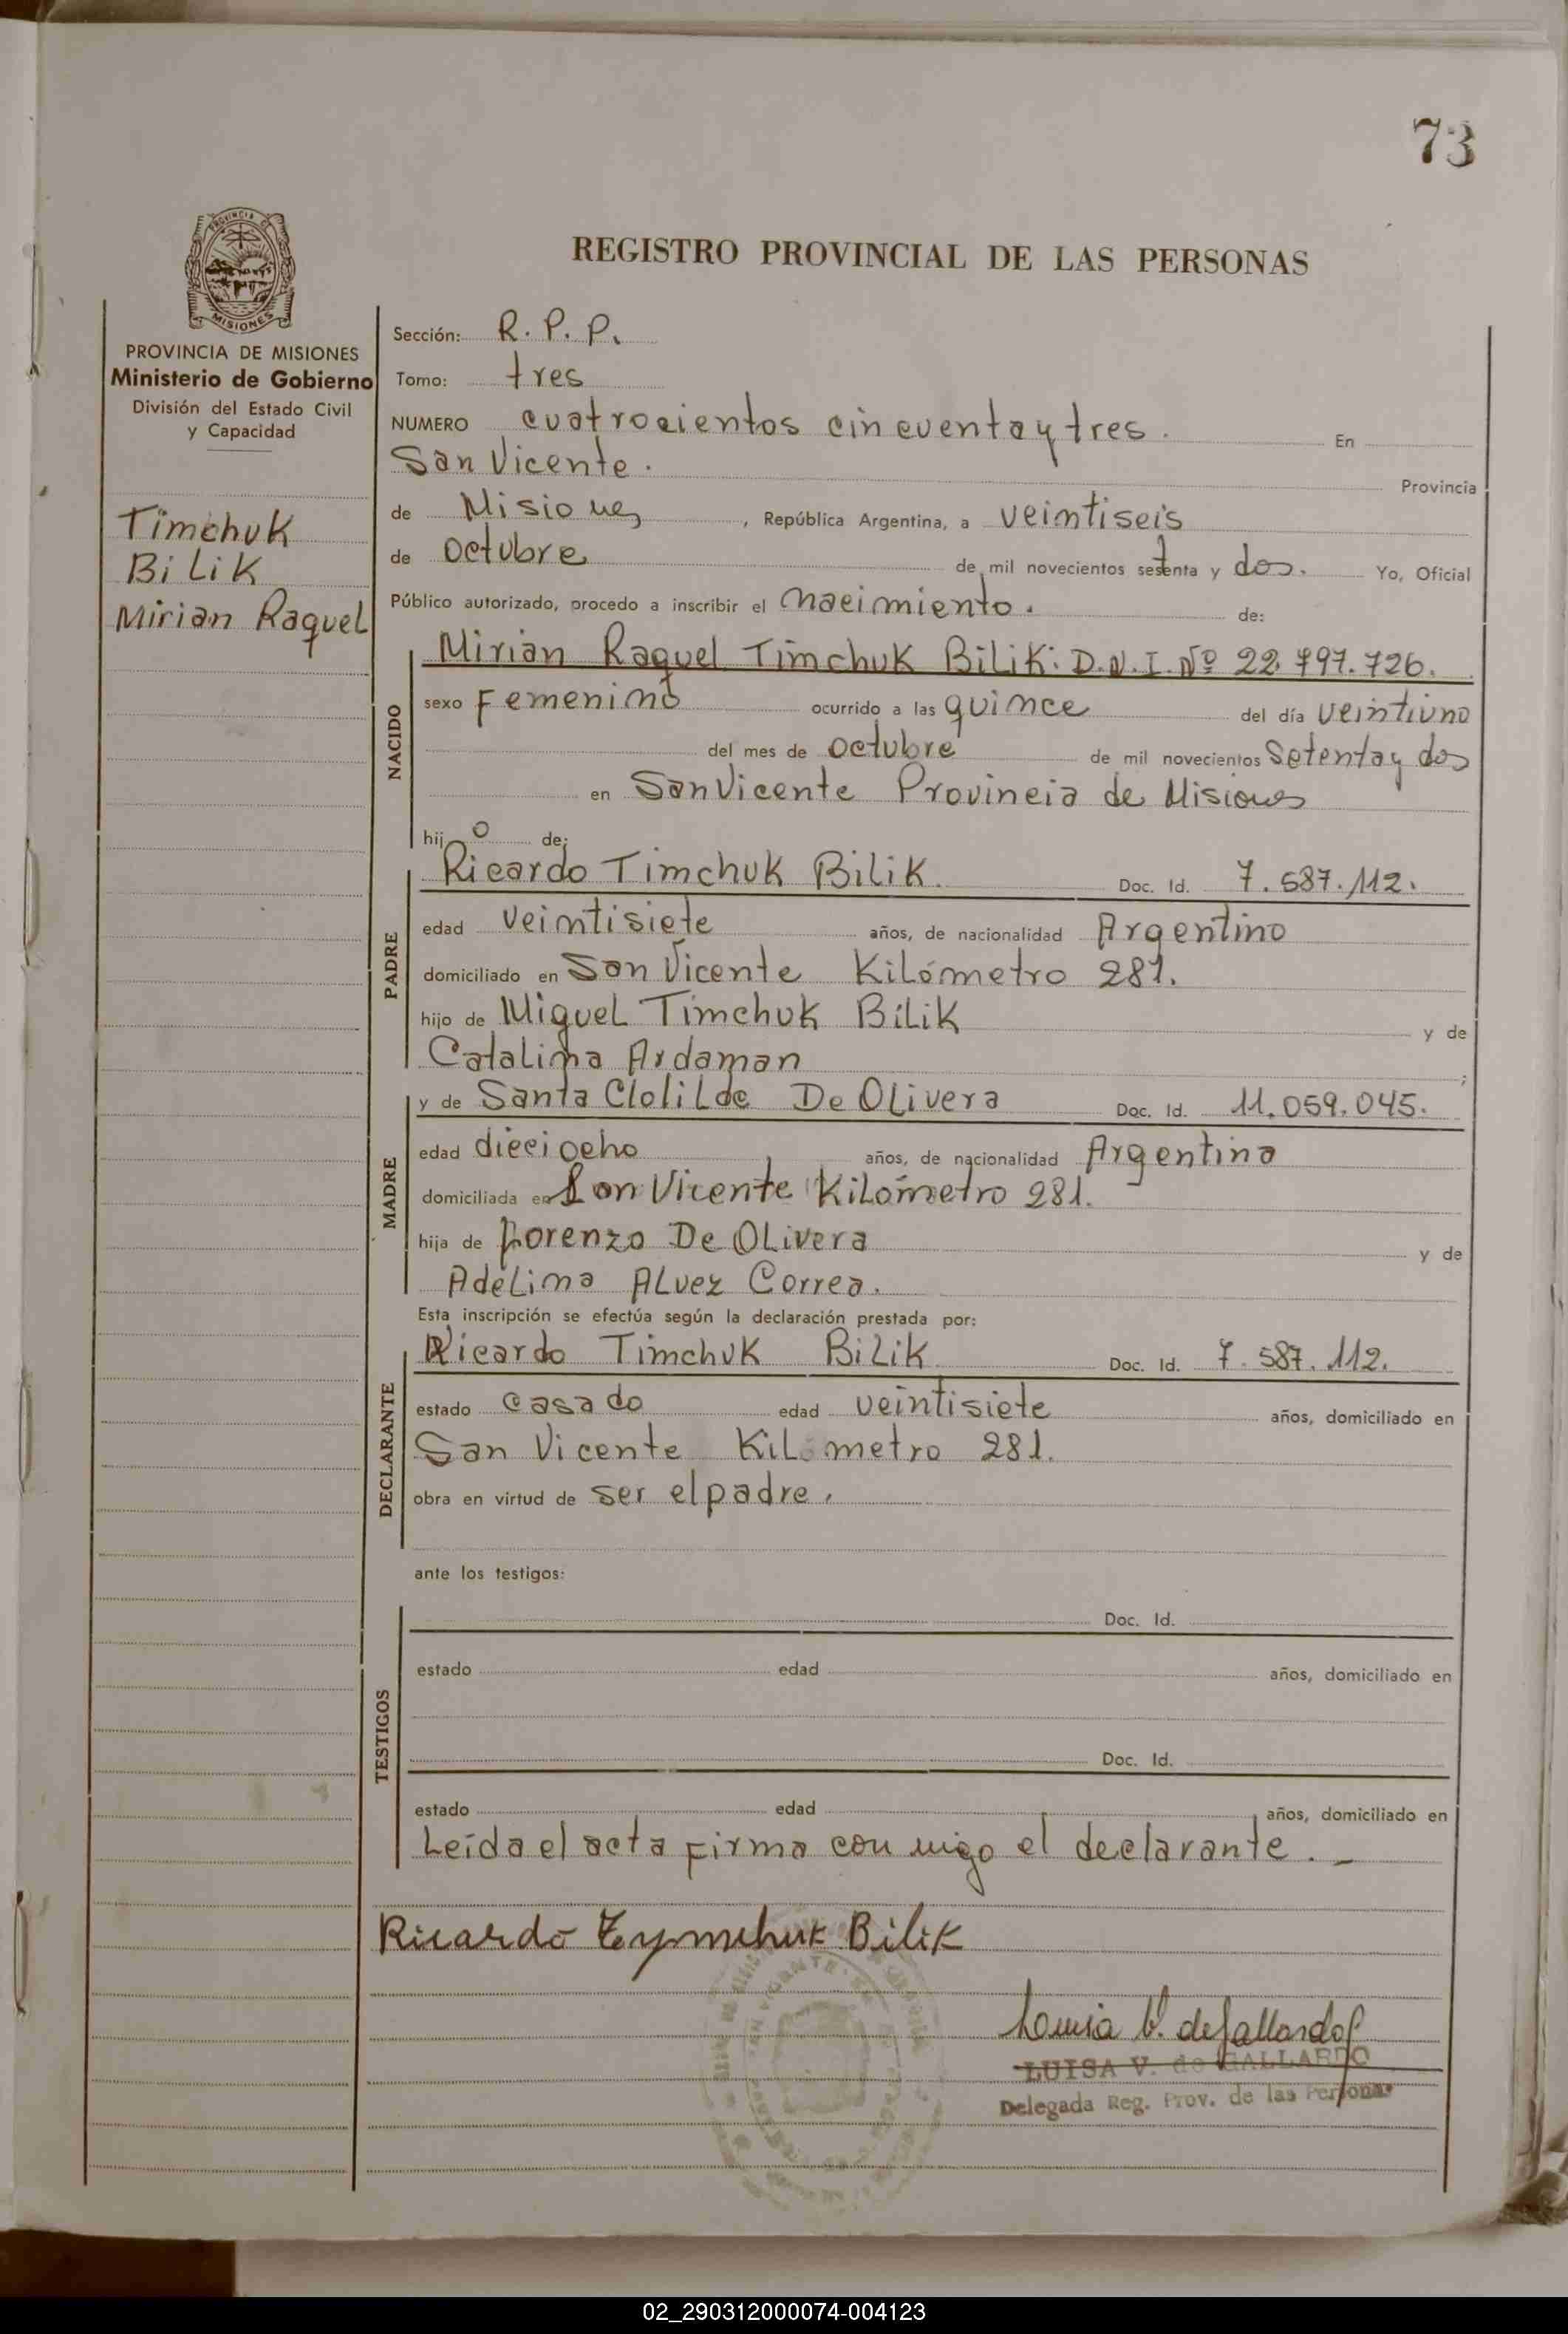 73
PROVINCIA DE MISIONES
Ministerio de Gobierno
División del Estado Civil
y Capacidad
Timchuk
Bilik
Mirian Raquel
REGISTRO PROVINCIAL DE LAS PERSONAS
Sección: R. P. P.
Tomo: tres
NUMERO cuatrocientos cincuenta y tres. En
San Vicente. Provincia
de Misiones, República Argentina, a veintiseis
de octubre de mil novecientos setenta y dos. Yo, Oficial
Público autorizado, procedo a inscribir el nacimiento. de:
NACIDO
Mirian Raquel Timchuk Bilik: D.N.I. Nº 22.797.726.
sexo Femenino ocurrido a las quince del día veintiuno
del mes de octubre de mil novecientos setenta y dos
en San Vicente Provincia de Misiones
hijo de:
PADRE
Ricardo Timchuk Bilik. Doc. Id. 7.587.112.
edad veintisiete años, de nacionalidad Argentino
domiciliado en San Vicente Kilómetro 281.
hijo de Miguel Timchuk Bilik y de
Catalina Ardaman ;
MADRE
y de Santa Clolilde De Olivera Doc. Id. 11.059.045.
edad dieciocho años, de nacionalidad Argentina
domiciliada en San Vicente Kilómetro 281.
hija de Lorenzo De Olivera y de
Adelina Alvez Correa.
Esta inscripción se efectúa según la declaración prestada por:
DECLARANTE
Ricardo Timchuk Bilik Doc. Id. 7.587.112.
estado casado edad veintisiete años, domiciliado en
San Vicente Kilometro 281.
obra en virtud de ser el padre.
ante los testigos:
TESTIGOS
Doc. Id.
estado edad años, domiciliado en
Doc. Id.
estado edad años, domiciliado en
Leída el acta firma con migo el declarante. -
Ricardo Tymchuk Bilik
Luisa V. de Gallardo
LUISA V. de GALLARDO
Delegada Reg. Prov. de las Personas
02_290312000074-004123